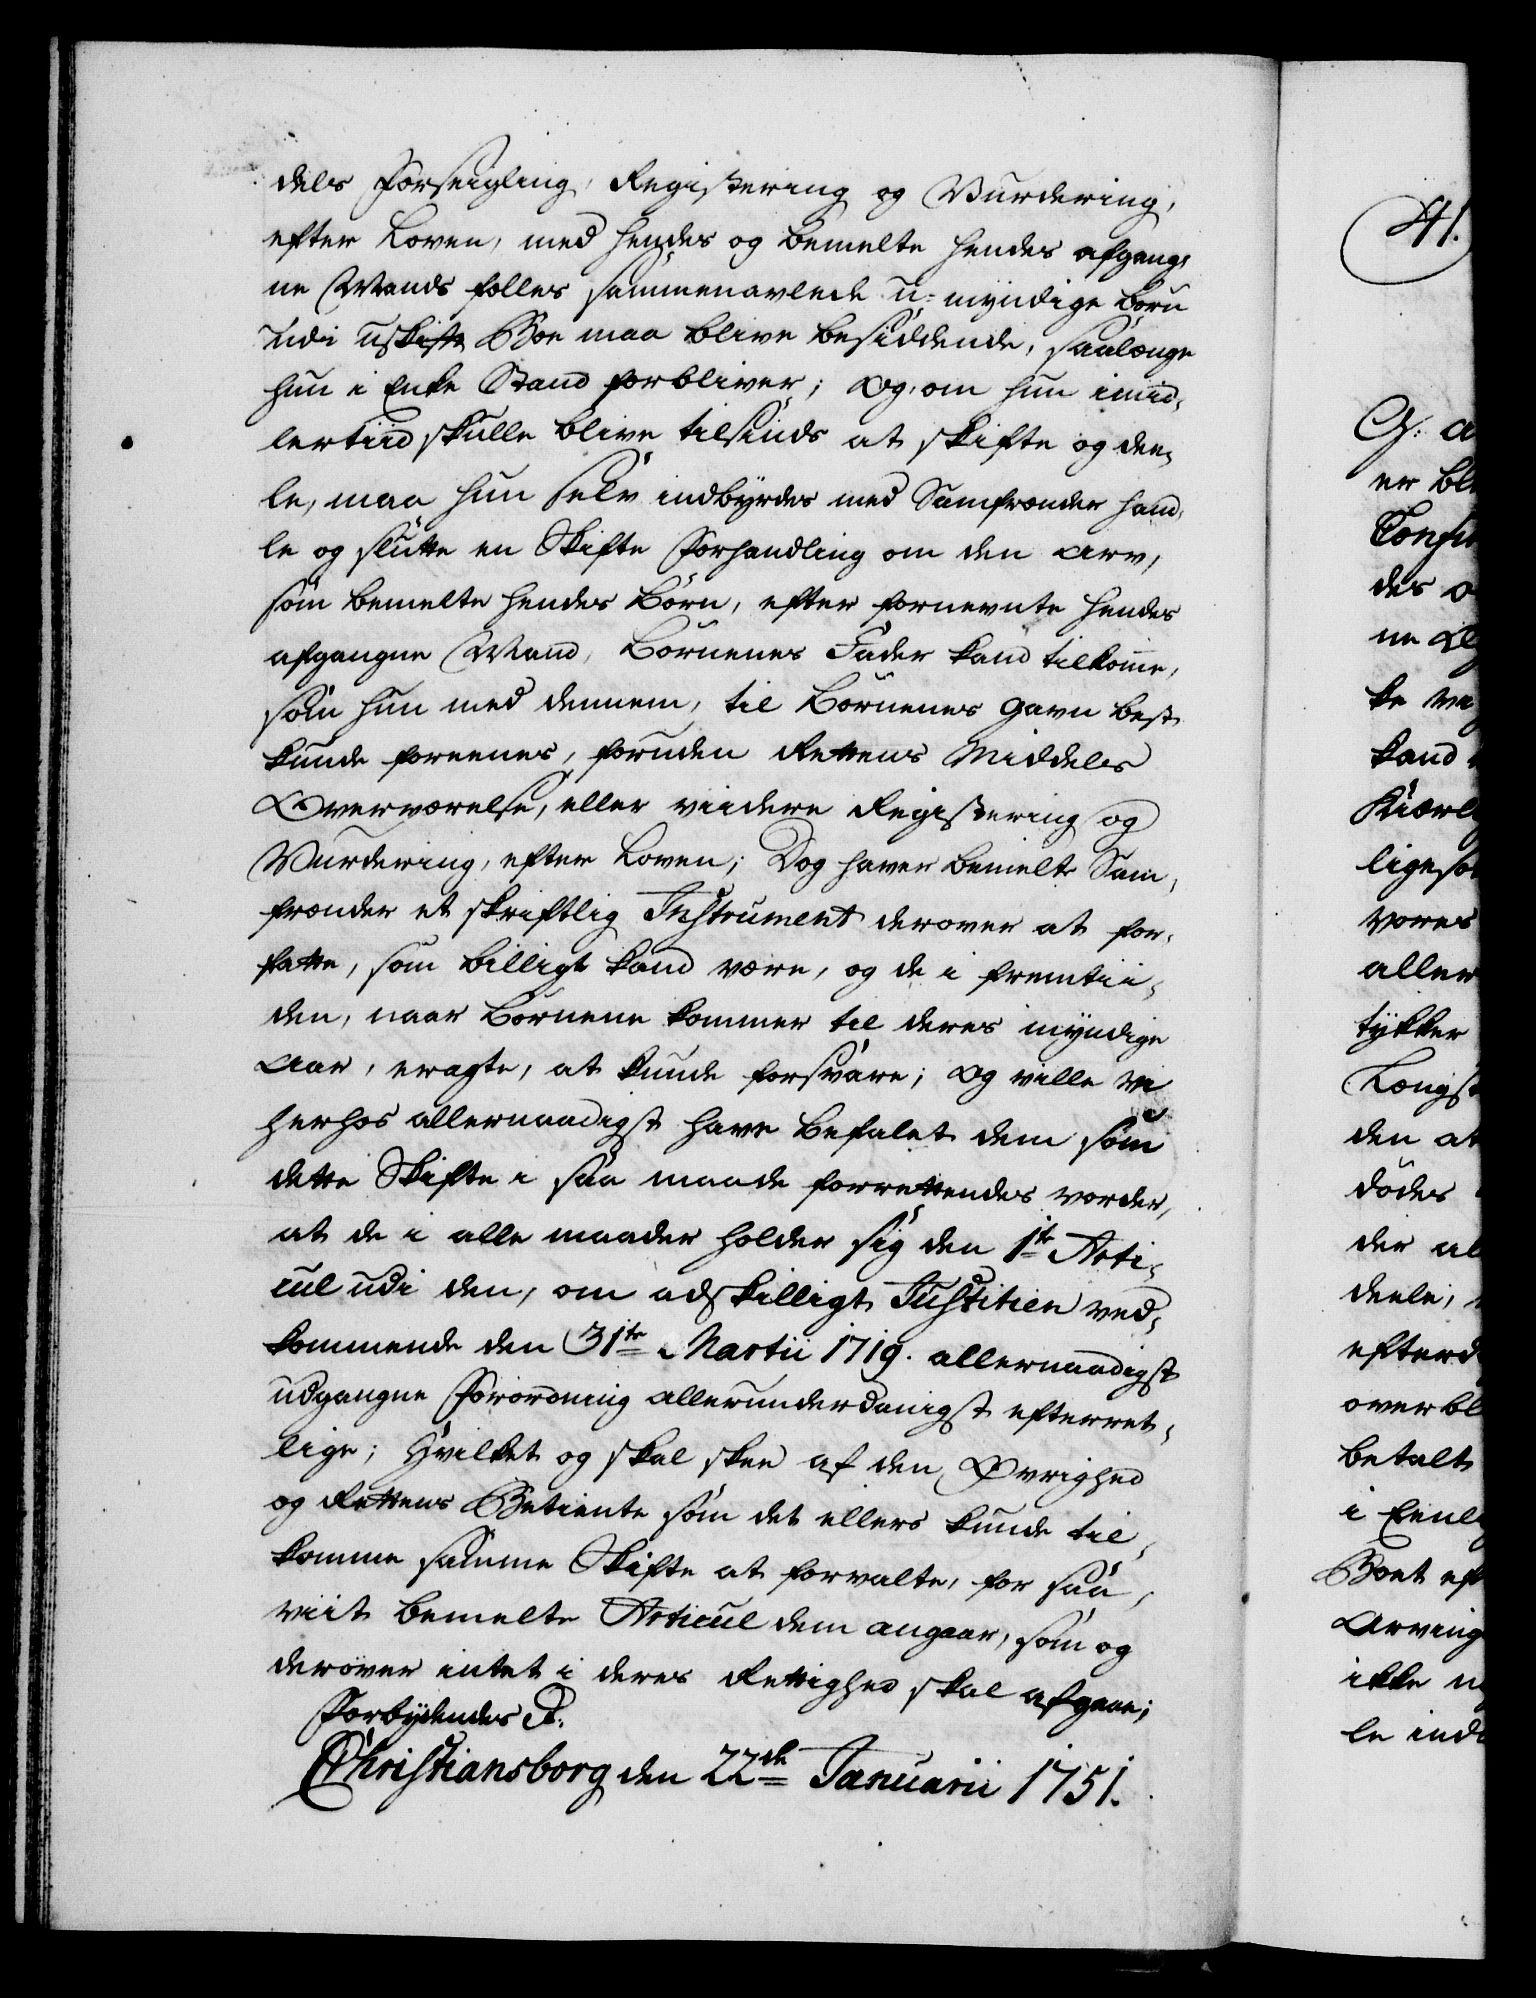 dels Forseigling, Registering og Vurdering,
efter Loven, med hendes og bemelte hendes afgang-
ne Mands fælles sammenavlede u-myndige børn
udi uskifte Boe maa blive besiddende, saalænge
hun i Enke Stand forbliver; Og, om hun imid-
lertiid skulle blive tilsinds at skifte og dee-
le, maa hun selv indbyrdes med Samfrænder hand-
le og slutte en Skifte Forhandling om den Arv,
som bemelte hendes Børn, efter fornevnte hendes
afgangne Mand, Børnenes Fader kand tilkomme,
som hun med dennem, til Børnenes gavn best
kunde foreenes, foruden Rettens Middels
Overværelse, eller viidere Registering og
Vurdering, efter Loven; Dog haver bemelte Sam-
frænder et skriftlig Instrument derover at for-
fatte, som billigt kand være, og de i fremtii-
den, naar Børnene kommer til deres myndige
Aar, eragte, at kunde forsvare; Og ville Vi
herhos allernaadigst have befalet dem som
dette Skifte i saa maade forrettendes vorder,
at de i alle maader holder sig den 1te Arti-
cul udi den, om adskilligt Justitien ved-
kommende den 31te Martii 1719. allernaadigst
udgangne Forordning allerunderdanigst efterret-
lige; Hvilket og skal skee af den Øvrighed
og Rettens Betiente som det ellers kunde til-
komme samme Skifte at forvalte, for saa-
viit bemelte Articul dem angaar, som og
derover intet i deres Rettighed skal afgaae;
Forbydendes &c.
Christiansborg den 22de Januarii 1751.
41.
er bl
des o
kand
ligesom
vores
aller
tykker
Længst
den at
dødes
der al
deele,
efterd
overbl
betalt
Boet ef
Arving
ikke
le ind